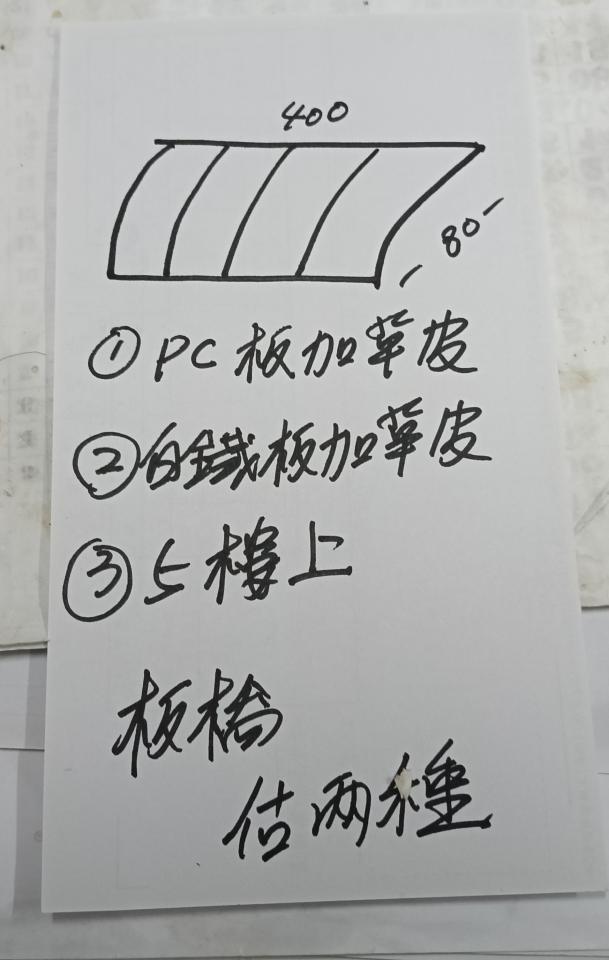 400
80
① PC 板加草皮
② 白鐵板加草皮
③ 5 樓上
板橋
估两種